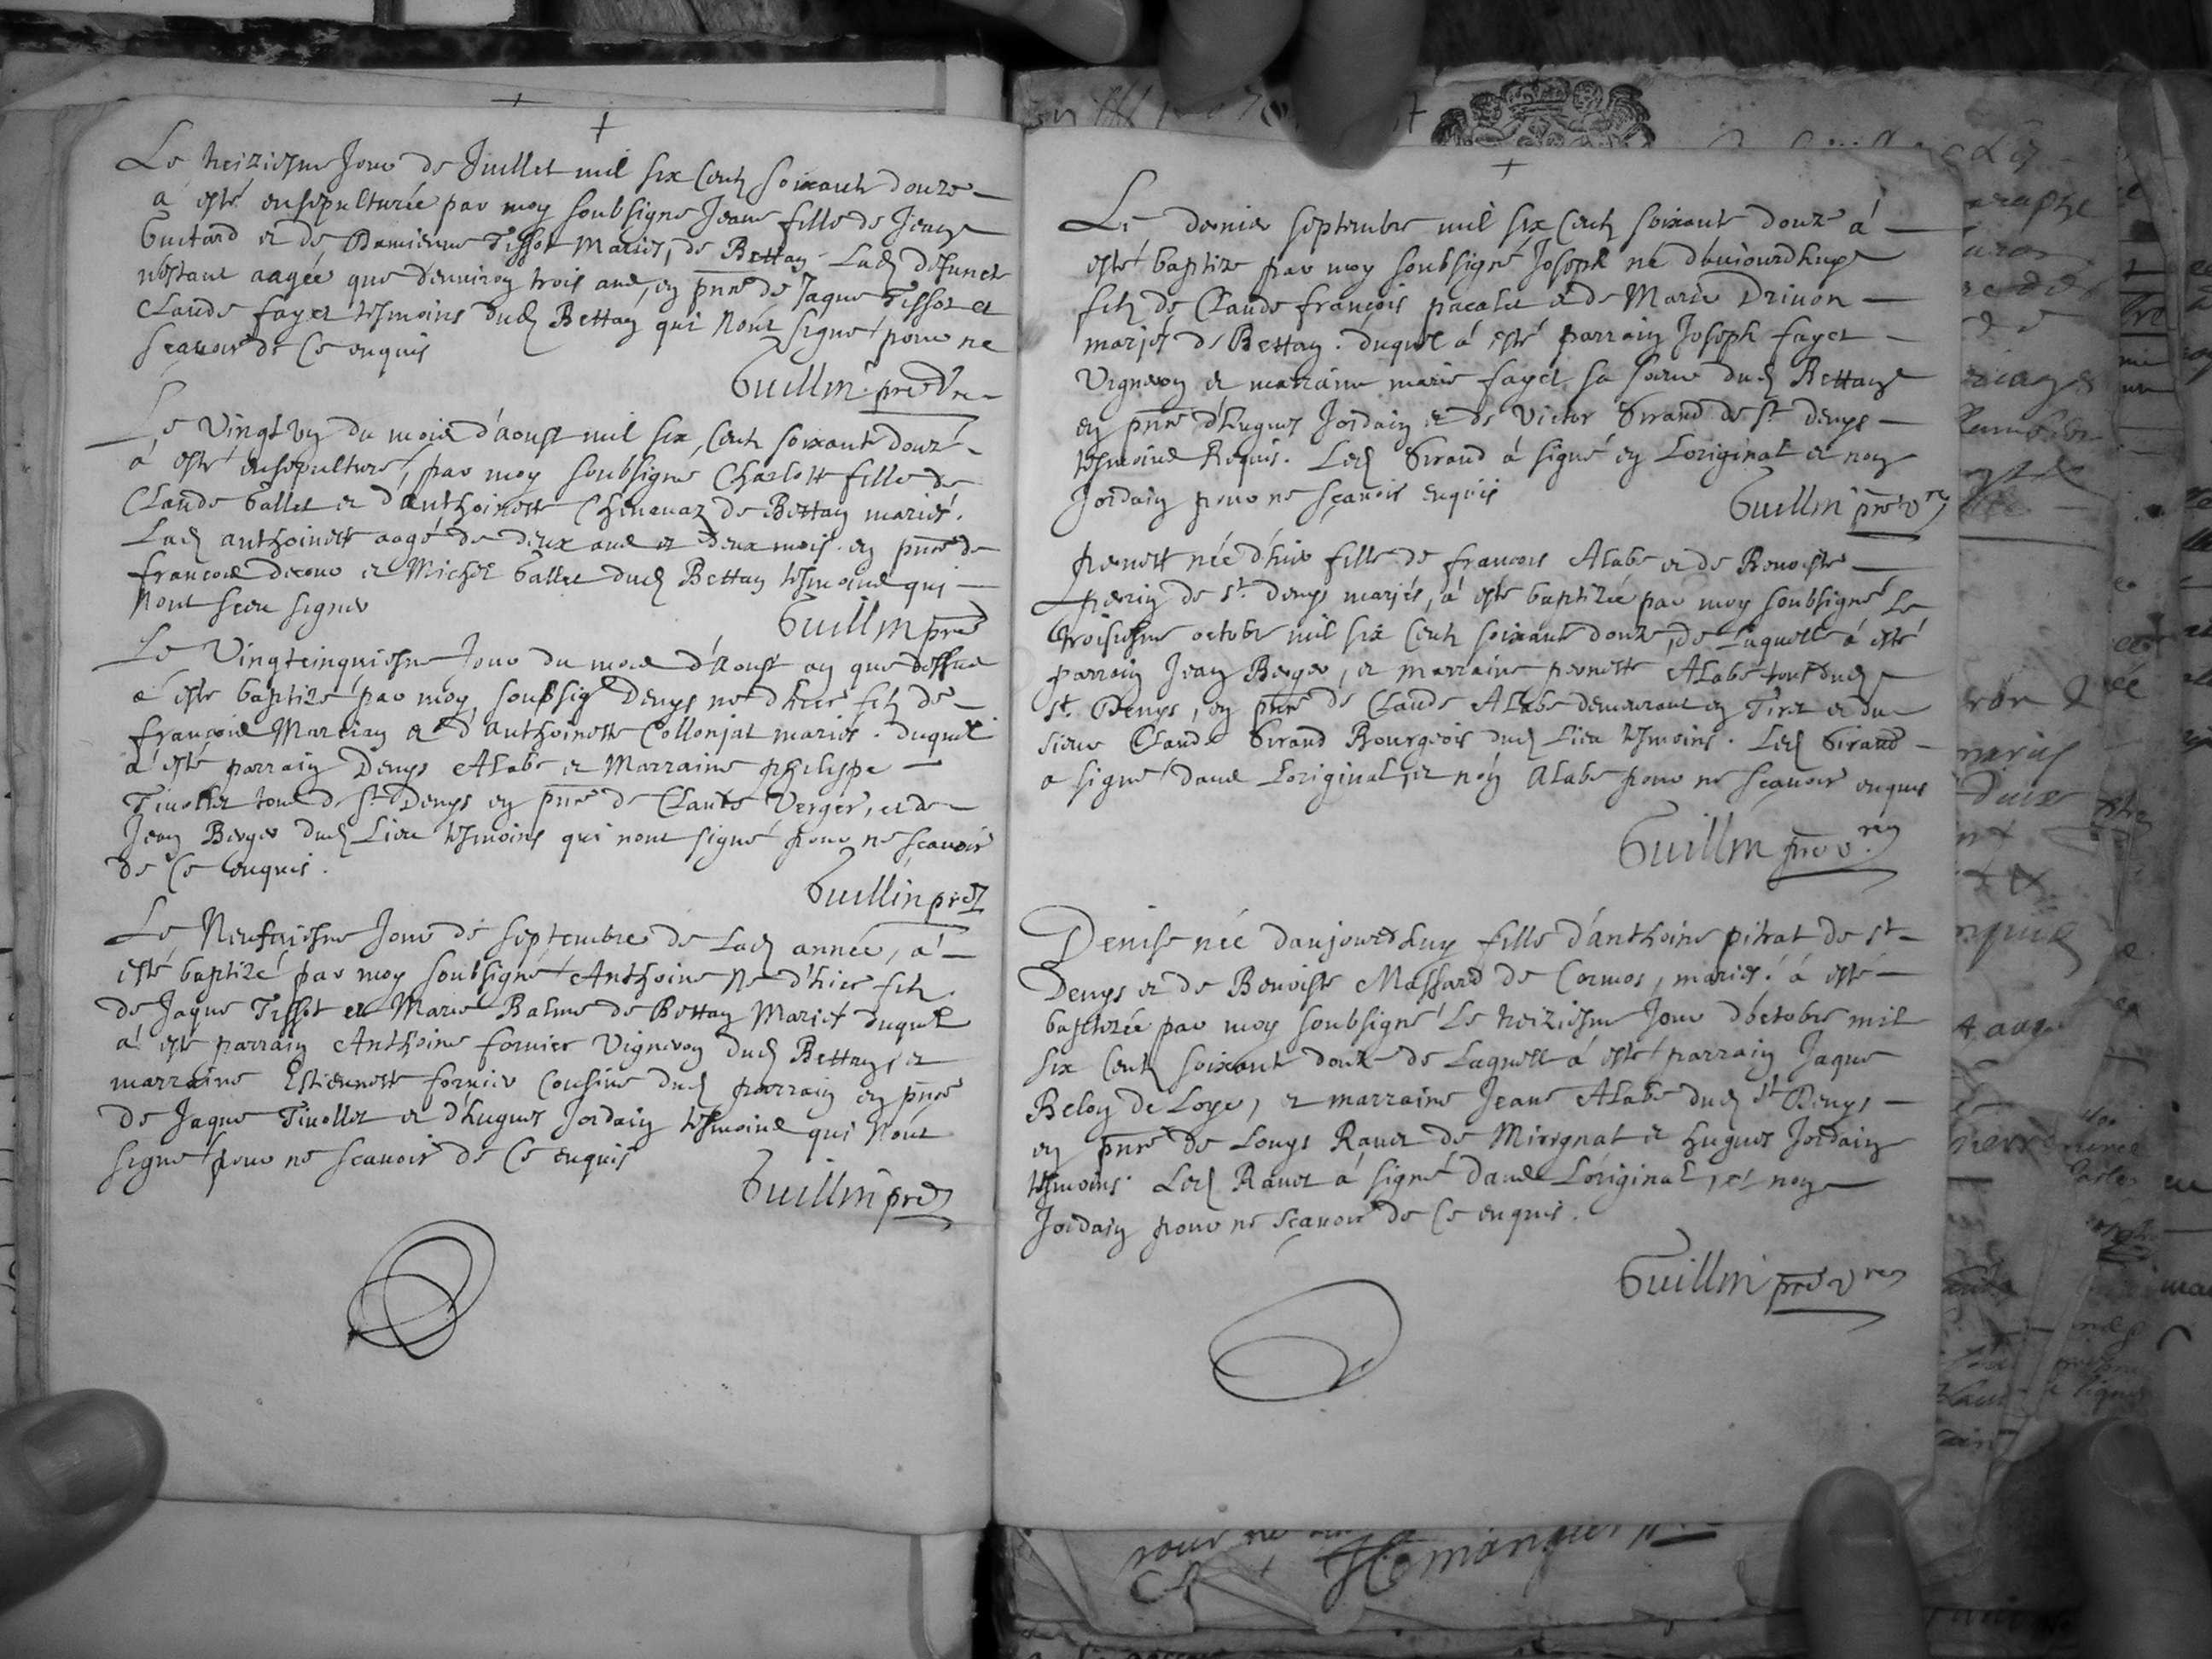 Le treiziesme Jour de Juillet mil six Centz soixante douze
a esté ensepulturée par moy soubsigné Jeane fille de Jean
Guitard et de Damienne Tissot Mariés, de Bettan. Lad defuncte
n'estant aagée que d'environ trois ans, en pnce de Jaque Tissot et
Claude fayet tesmoins dud Bettan qui n'ont signé pour ne
scavoir de ce enquis
Guillin pre Vre
Le Vingt Un du mois d'aoust mil six Centz soixante douze
a esté ensepulturé, par moy soubsigné Charlotte fille de
Claude Gallet et d'Anthoinette Chenavaz de Bettan mariés.
Lad anthoinette aagé de deux ans et deux mois en pnce de
francois et Michel Gallet dud Bettan tesmoins qui
n'ont sceu signer
Guillin pre
Le Vingtcinquiesme Jour du mois d'Aoust an que dessus
a esté baptizé par moy soubsigé Denys né d'hier filz de
françois Marcian et d'anthoinette Collonjat mariés. duquel
a esté parrain Denys Alabe et Marraine philippe
Tivollet tous de St Denys en pnce de Claude Verger, et de
Jean Berger dud Lieu tesmoins qui n'ont signé pour ne scavoir
de Ce enquis.
Guillin pre
Le Neufviesme Jour de septembre de Lad année, a
esté baptizé par moy soubsigné Anthoine né d'hier filz
de Jaque Tissot et Marie Balme de Bettan Mariés duquel
a esté parrain Anthoine fornier Vigneron dud Bettan, et
marraine Estiennette fornier Cousine dud parrain en pnce
de Jaque Tivollet et d'hugues Jordain tesmoins qui n'ont
signé pour ne scavoir de Ce enquis
Guillin pre
Le dernier septembre mil six Centz soixante douze a
esté baptizé par moy soubsigné Joseph né d'aujourdhuy
filz de Claude françois pacalet et de Marie Drivon
mariés de Bettan. duquel a esté parrain Joseph fayet
Vigneron et marraine marie fayet sa soeur dud Bettan
en pnce d'hugues Jordain et de Victor Girand de St Denys
tesmoins Requis. Led Girand a signé en L'original et non
Jordain pour ne sçavoir enquis
Guillin pre vre
pernette née d'hier fille de francois Alabe et de Benoiste
perrin de St Denys mariés, a esté baptizée par moy soubsigné Le
troisiesme octobre mil six Centz soixante douze, de Laquelle a esté
parrain Jean Berger, et marraine pernette Alabe tous dud
St Denys, en pnce de Claude Alabe demeurant en Tiret et du
sieur Claude Girand Bourgeois dud Lieu tesmoins. Led Girand
a signé dans L'original, et non Alabe pour ne scavoir enquis
Guillin pre v.re
Denise née daujourdhuy fille d'anthoine pitrat de St
Denys et de Benoiste Massard de Cormos, mariés. a esté
baptizée par moy soubsigné Le treiziesme Jour d'octobre mil
six Centz soixante douze de Laquelle a esté parrain Jaque
Belon de Loye, et marraine Jeane Alabe dud St Denys
en pnce de Louys Ravet de Mirignat et hugues Jordain
tesmoins. Led Ravet a signé dans L'original, et non
Jordain pour ne scavoir de Ce enquis.
Guillin pre vre